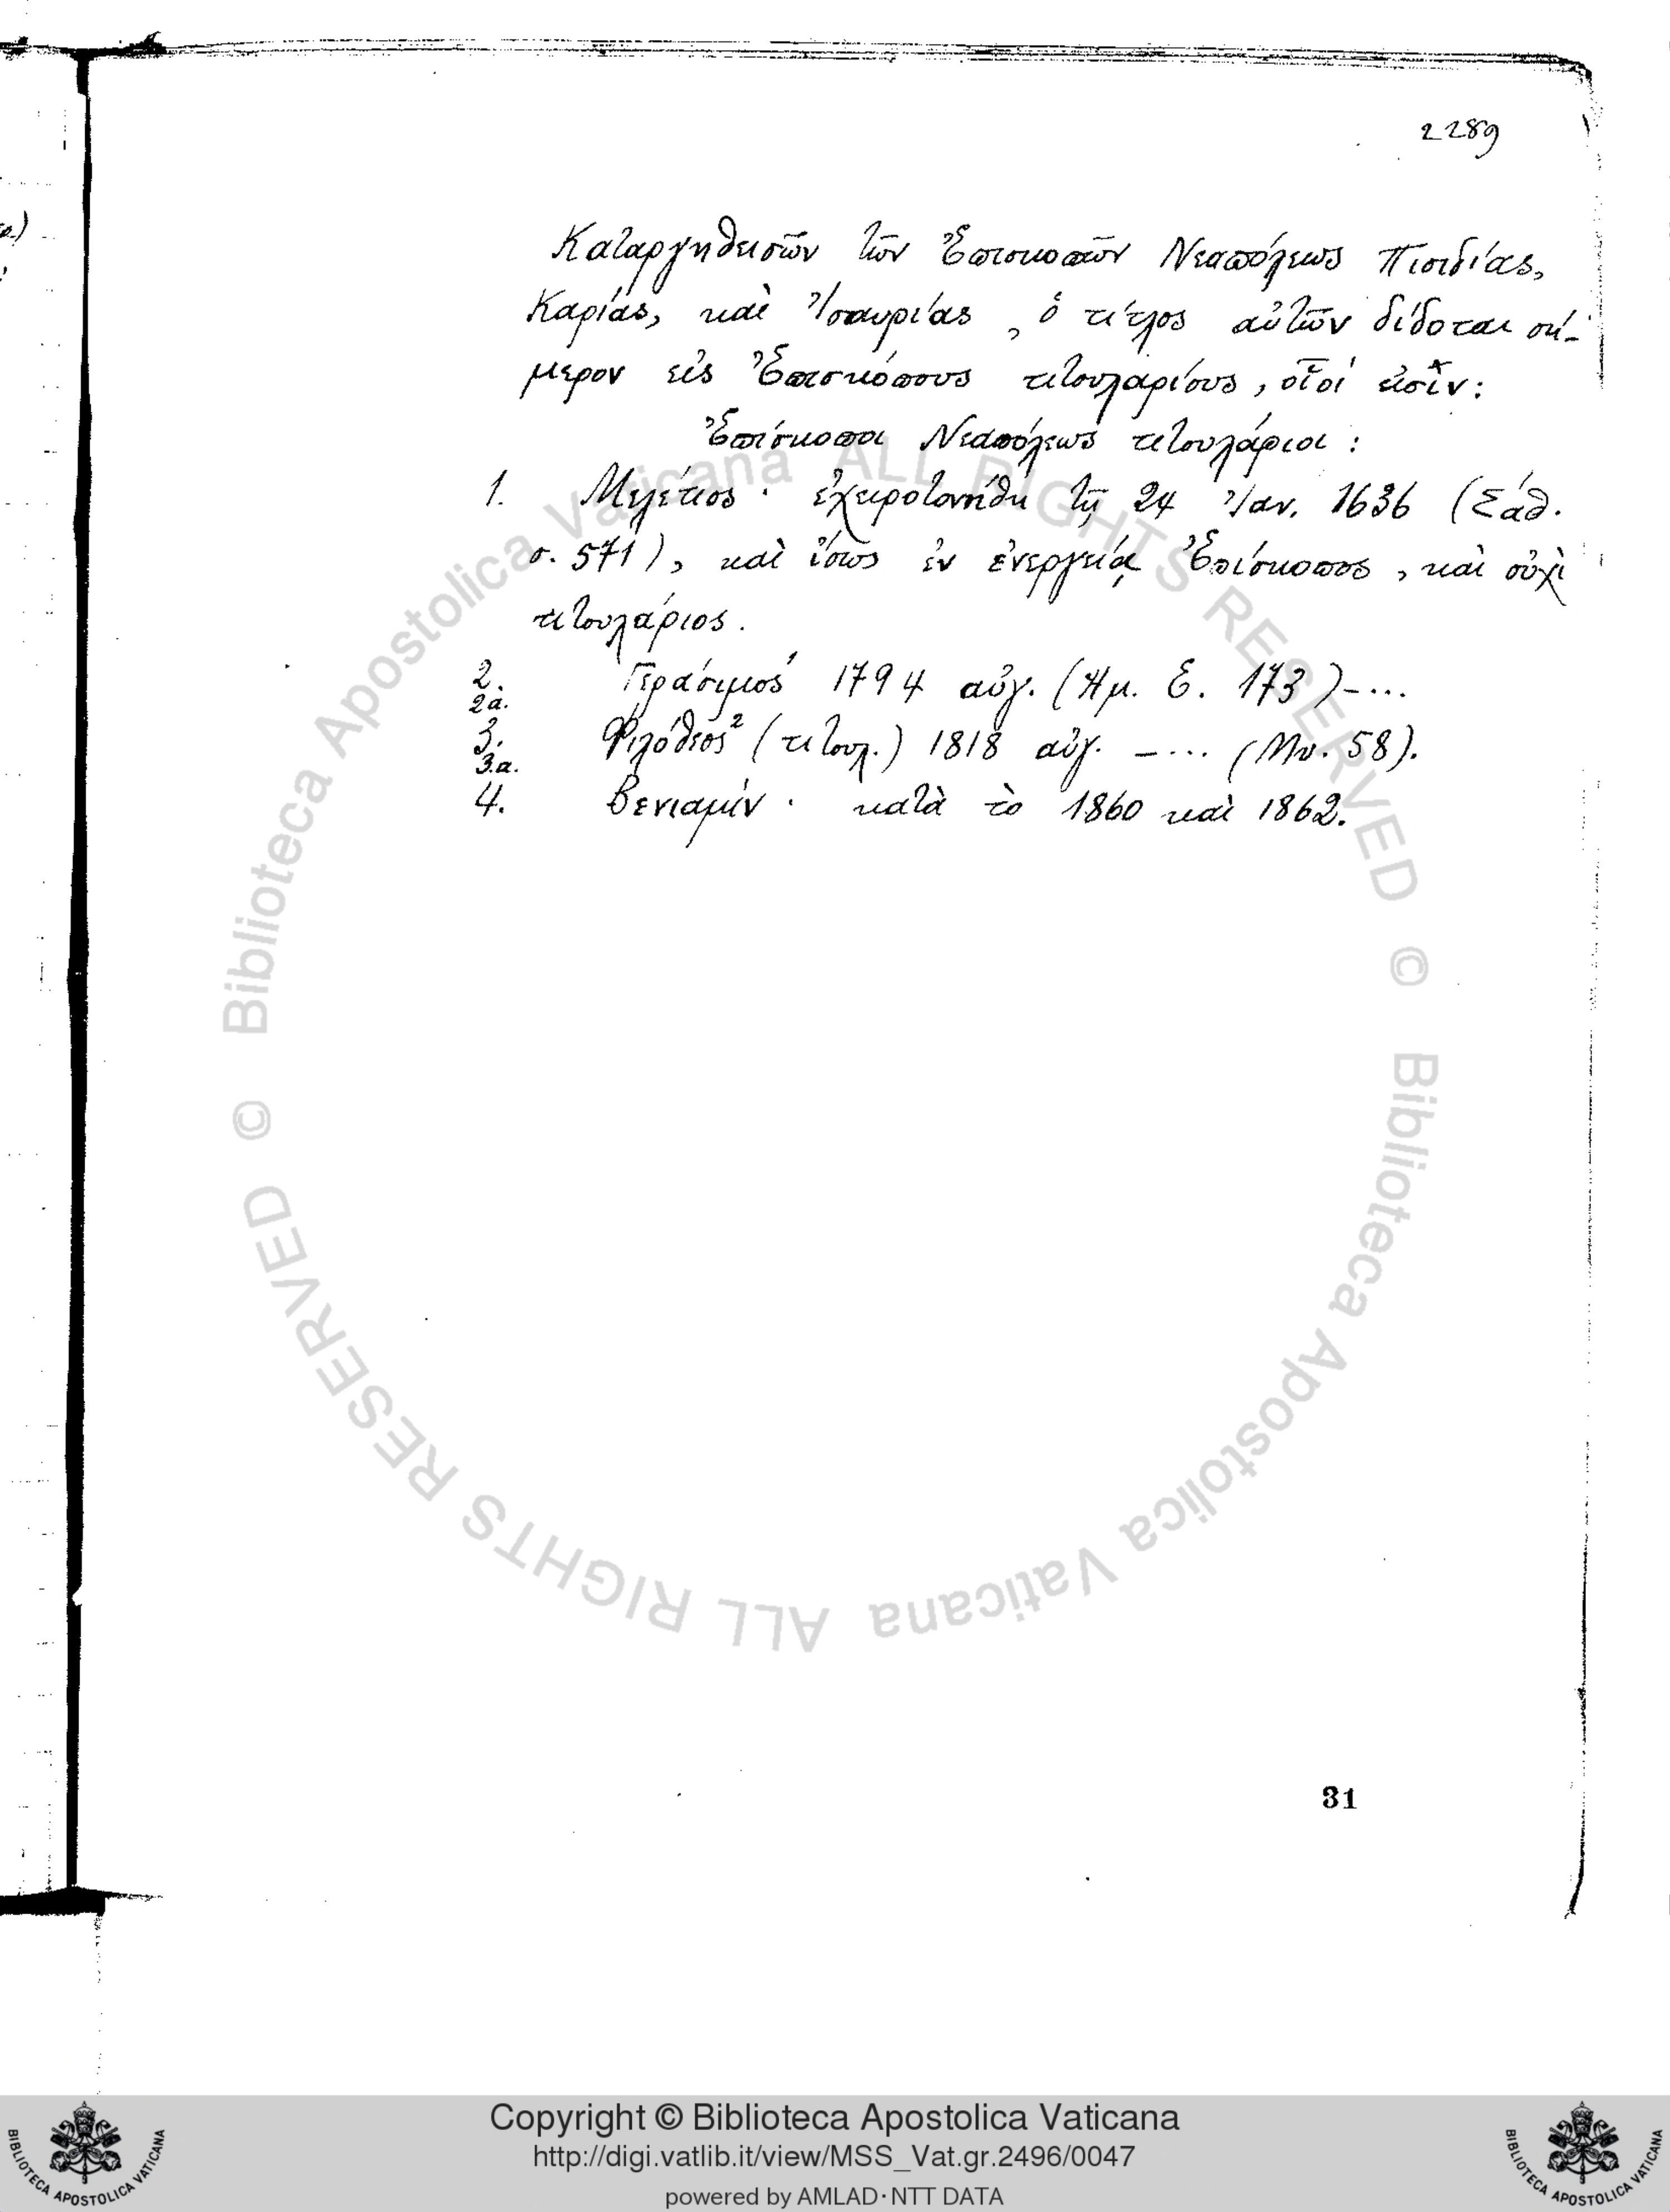 2289
Καταργηθεισῶν τῶν Ἐπισκοπῶν Νεαπόλεως Πισιδίας,
Καρίας, καὶ Ἰσαυρίας, ὁ τίτλος αὐτῶν δίδοται σή-
μερον εἰς Ἐπισκόπους τιτουλαρίους, οἷοί εἰσιν:
Ἐπίσκοποι Νεαπόλεως τιτουλάριοι:
1. Μελέτιος · ἐχειροτονήθη τῇ 24 Ἰαν. 1636 (Σάθ.
σ. 571), καὶ ἴσως ἐν ἐνεργείᾳ Ἐπίσκοπος, καὶ οὐχὶ
τιτουλάριος.
2. Γεράσιμος¹ 1794 αὐγ. (Ἡμ. Ε. 173)-...
2α.
3. Φιλόθεος² (τιτουλ.) 1818 αὐγ. -... (Μν. 58).
3.α.
4. Βενιαμίν · κατὰ τὸ 1860 καὶ 1862.
31
© Biblioteca Apostolica Vaticana ALL RIGHTS RESERVED
© Biblioteca Apostolica Vaticana ALL RIGHTS RESERVED
Copyright © Biblioteca Apostolica Vaticana
http://digi.vatlib.it/view/MSS_Vat.gr.2496/0047
powered by AMLAD·NTT DATA
BIBLIOTECA APOSTOLICA VATICANA
BIBLIOTECA APOSTOLICA VATICANA